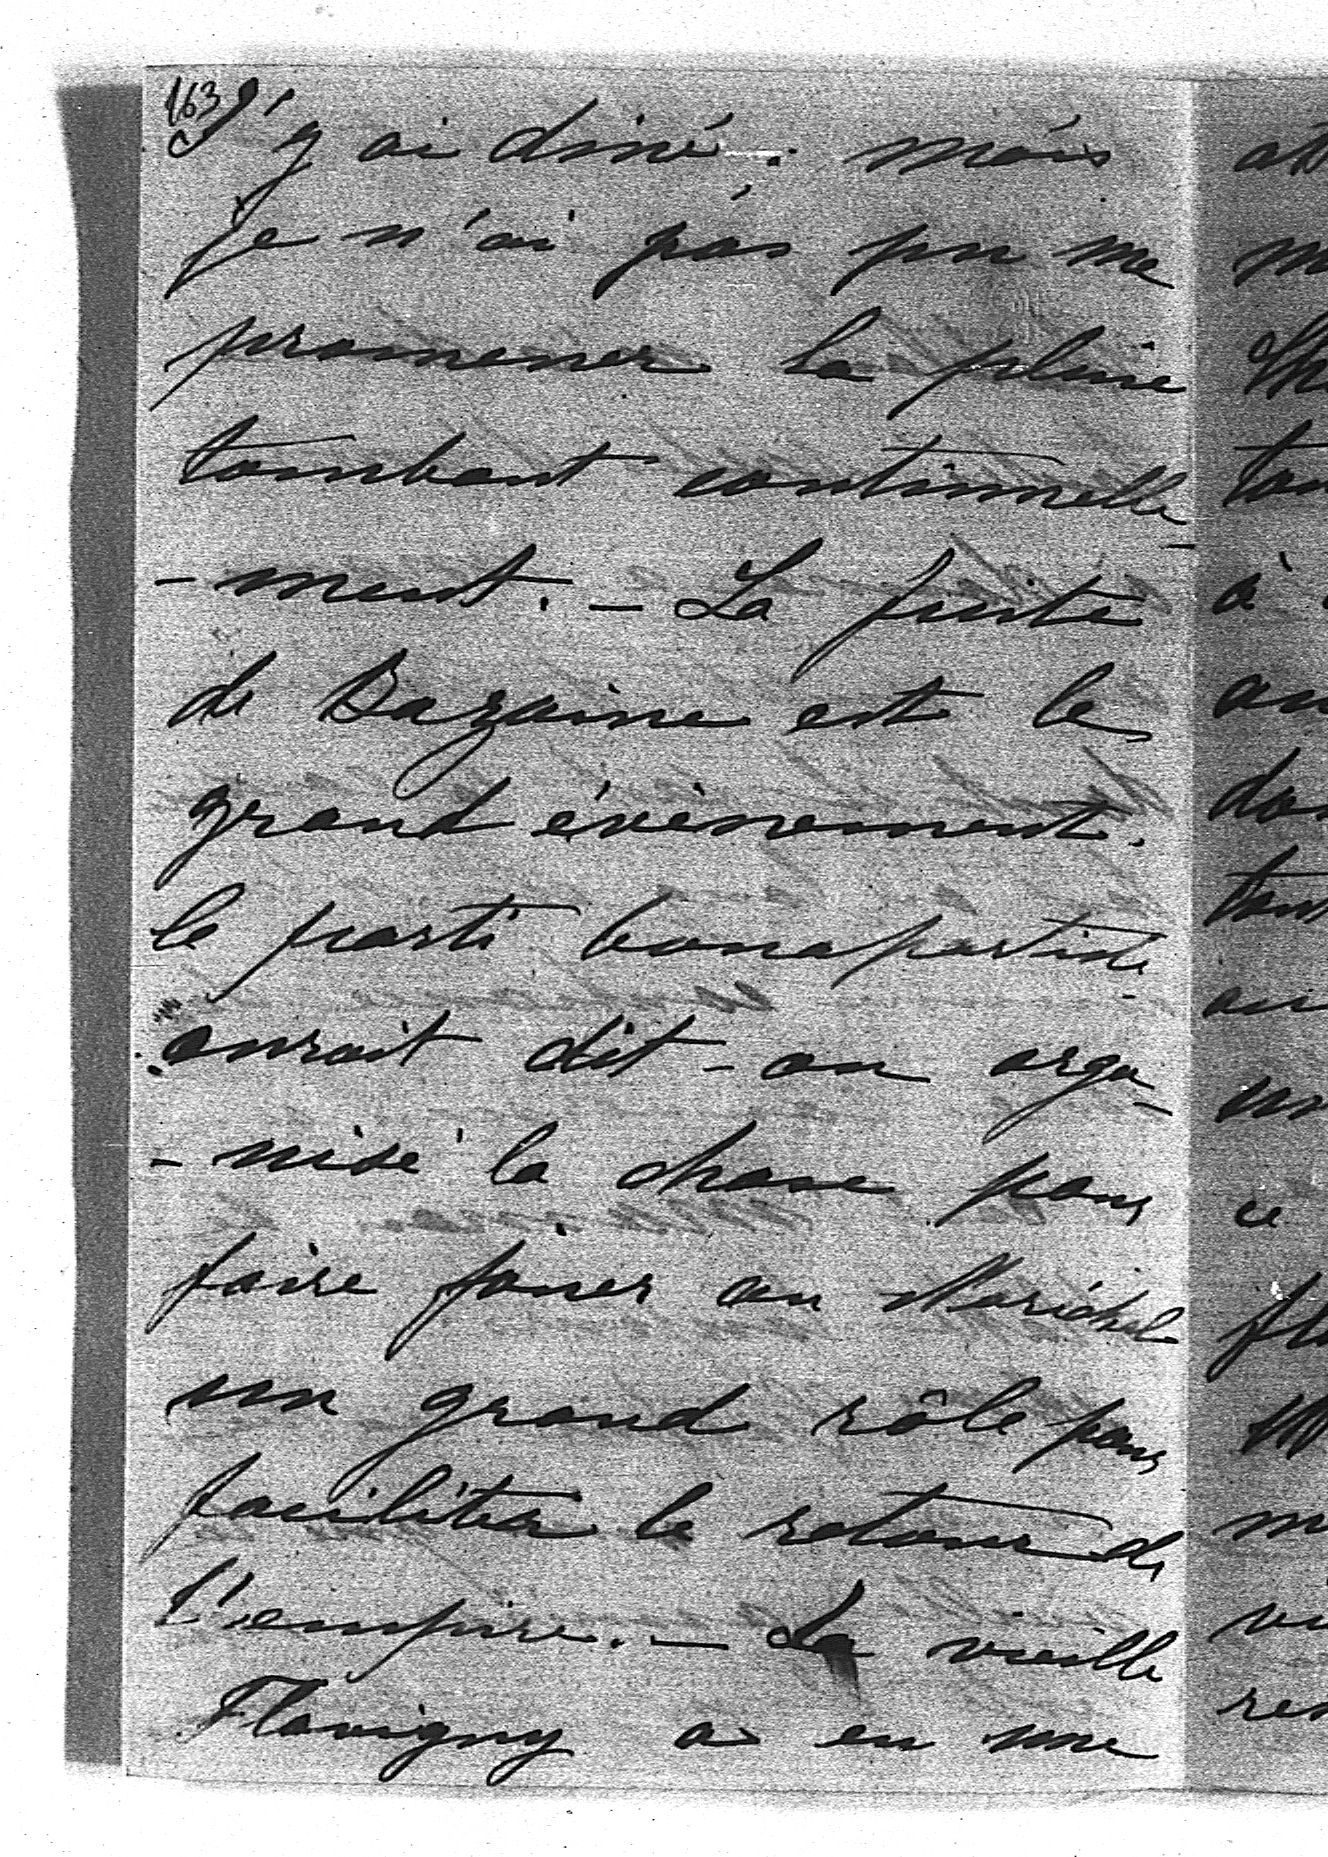 163
J'y ai diné; mais
je n'ai pas pu me
promener la pluie
tombant continuelle
-ment. - La fuite
de Bazaine est le
grand évènement.
le parti bonapartiste
aurait dit-on orga-
-nisé la chose pour
faire jouer au Maréchal
un grand rôle pour
faciliter le retour de
l'empire. - La vieille
Flavigny a eu une
à
ce